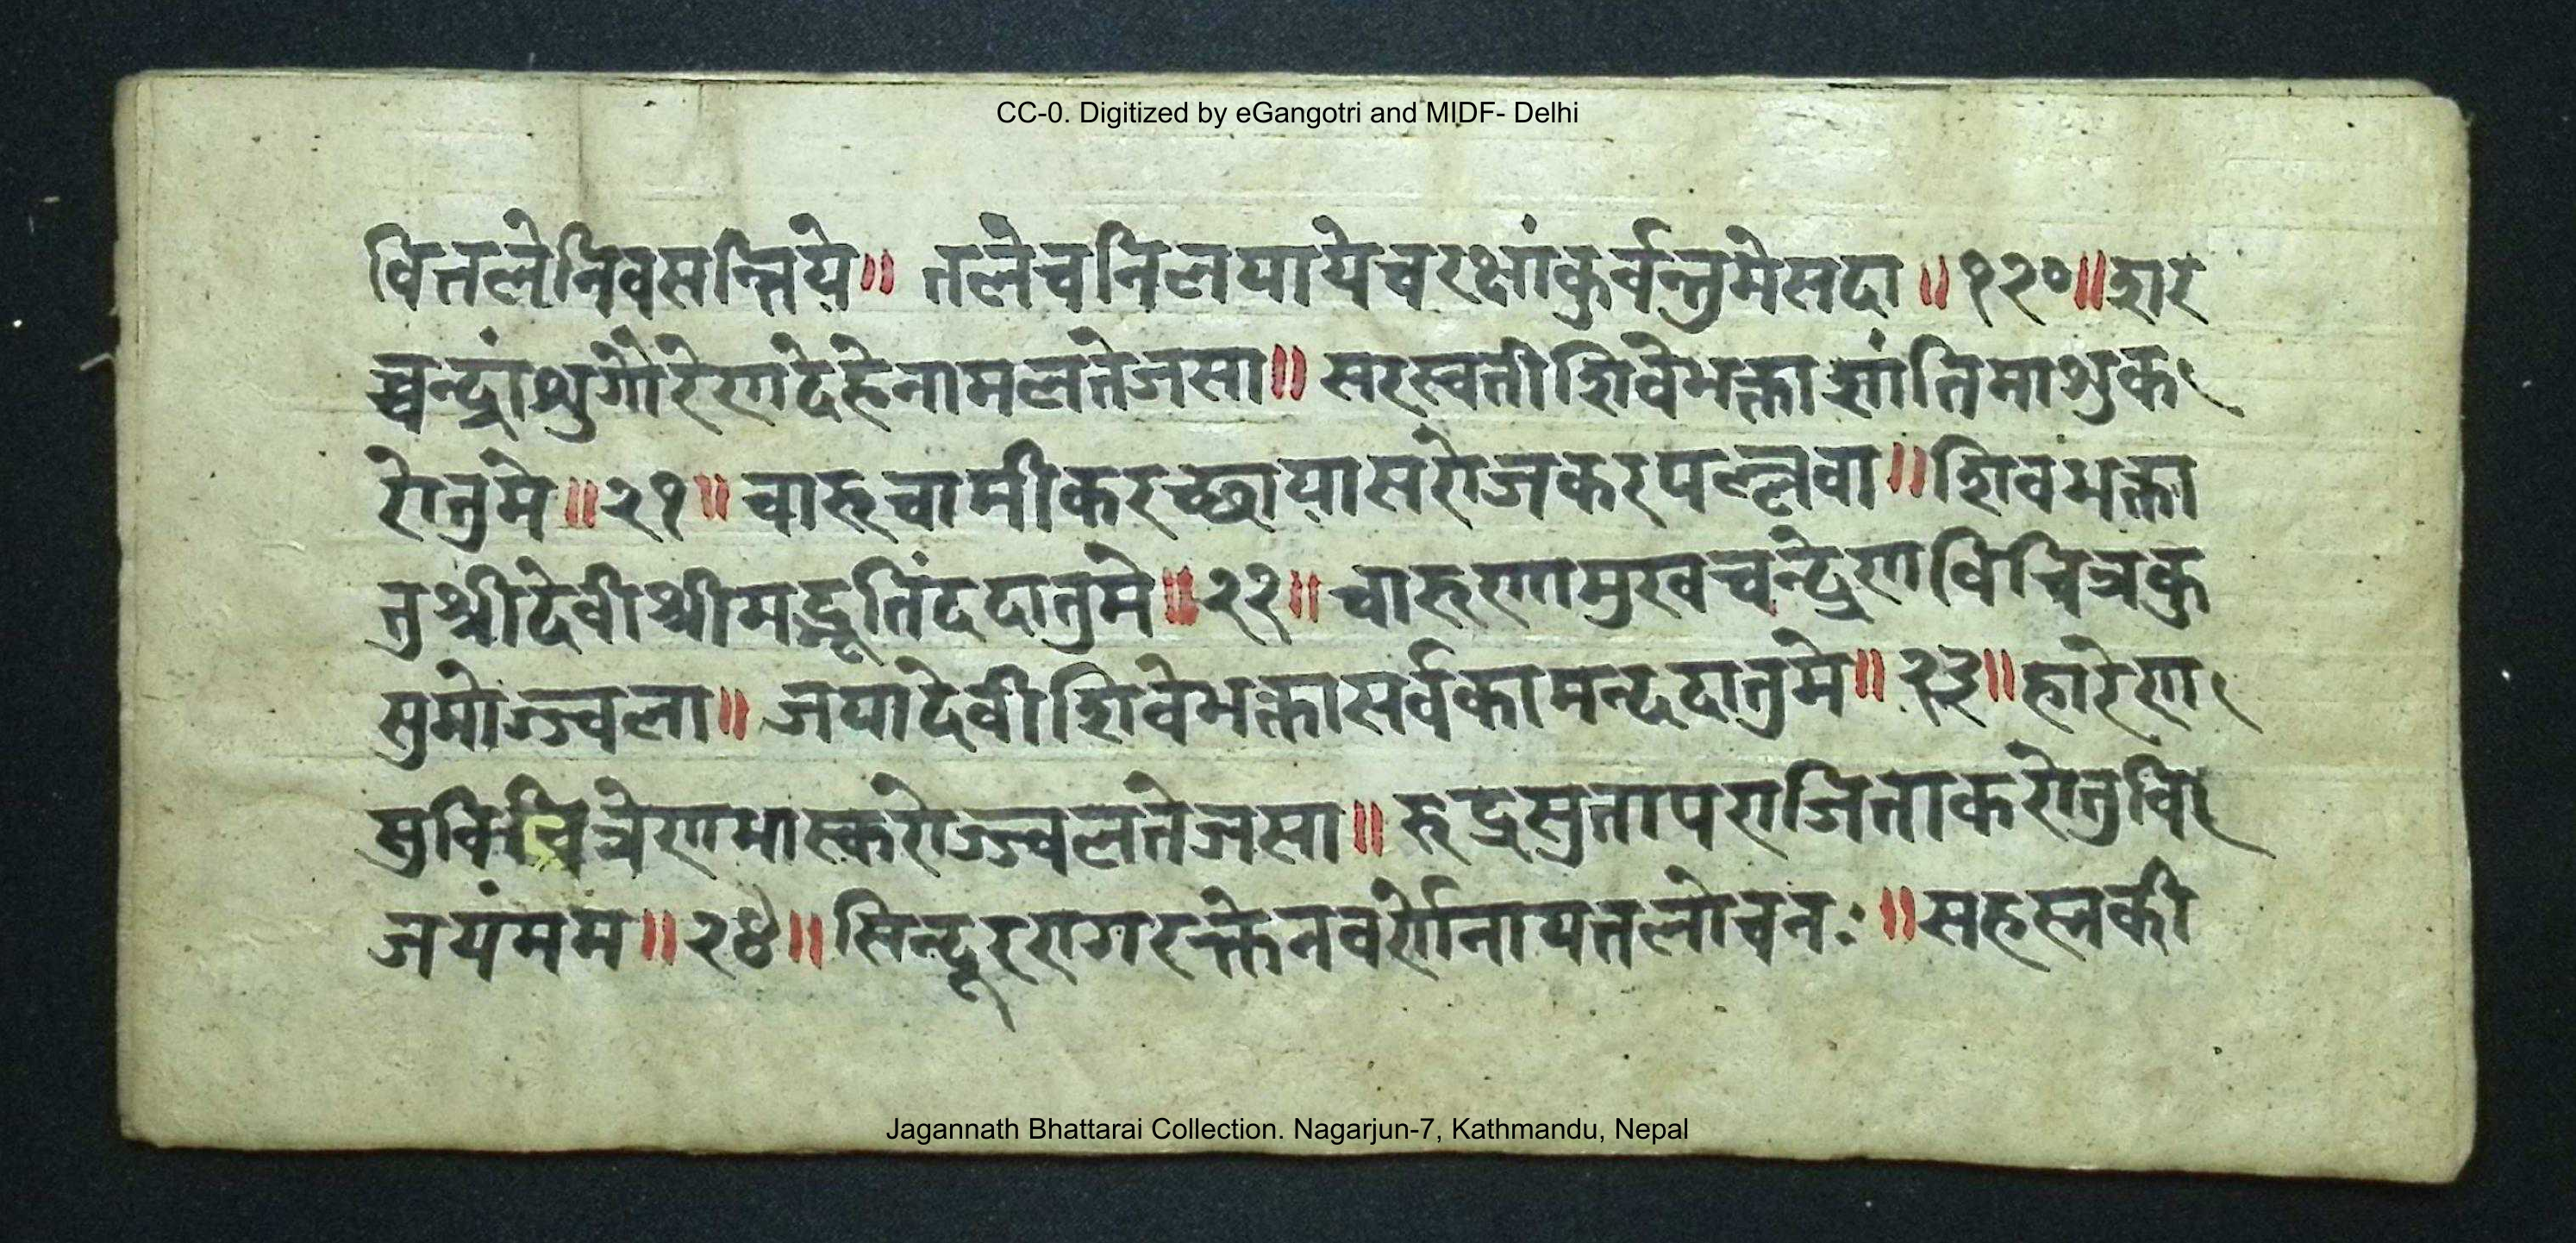 CC-0. Digitized by eGangotri and MIDF- Delhi
वितलेनिवसन्तिये॥ तलेचनिलयायेचरक्षांकुर्वन्तुमेसदा॥१२०॥शर
च्चन्द्रांशुगौरेणदेहेनामलतेजसा॥ सरस्वतीशिवेभक्ताशांतिमाशुक
रोतुमे॥२१॥ चारुचामीकरच्छायासरोजकरपल्लवा॥शिवभक्ता
तुश्रीदेवीश्रीमद्भूतिंददातुमे॥२२॥ चारुणामुखचन्द्रेणविचित्रकु
सुमोज्ज्वला॥ जयादेवीशिवेभक्तासर्वकामन्ददातुमे॥२३॥हारेण
सुविचित्रेणभास्करोज्ज्वलतेजसा॥ रुद्रसुतापराजिताकरोतुवि
जयंमम॥२४॥सिन्दूररागरक्तेनवर्णेनायतलोचनः॥सहस्नकी
Jagannath Bhattarai Collection. Nagarjun-7, Kathmandu, Nepal